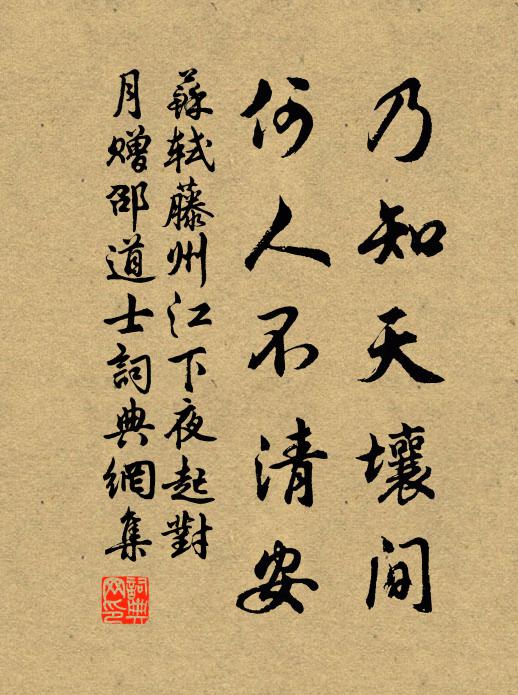 乃知天壤間
何人不清安
蘇軾藤州江下夜起對
月贈邵道士詞典網集
詞典網印